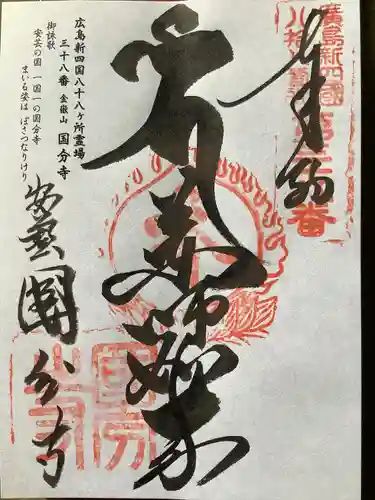 廣島新四國
八十八ヶ所
第三十八番
奉拝
薬師如来
広島新四国八十八ヶ所霊場
三十八番 金嶽山 国分寺
御詠歌
安芸の国 一国一の国分寺
まいる姿は ぼさつなりけり
安芸國分寺